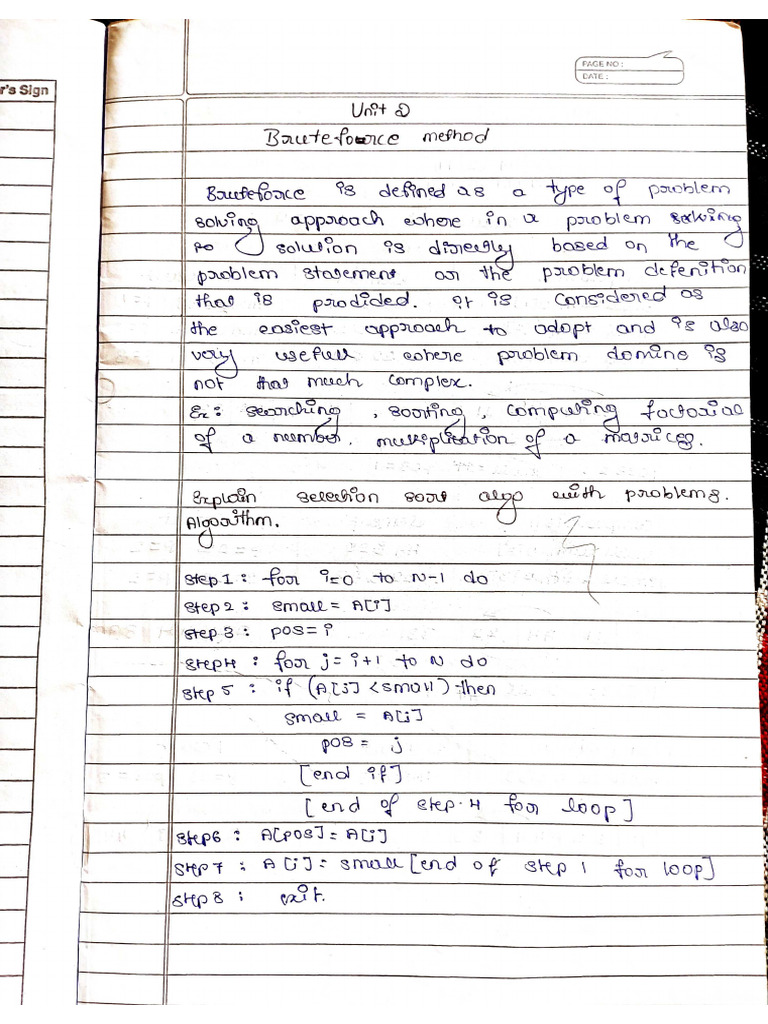 r's Sign
PAGE NO :
DATE :
Unit 2
Bruteforce method
Bruteforce is defined as a type of problem
solving approach where in a problem solving
solution is directly based on the
problem statement or the problem defenition
that is prodided. It is considered as
the easiest approach to adopt and is also
very usefull where problem domine is
not that much complex.
Ex: searching, sorting, computing factorial
of a number. multiplication of a matrices.
Explain selection sort algo with problems.
Algorithm.
Step 1 : for i=0 to N-1 do
Step 2 : small = A[i]
Step 3 : pos = i
Step 4 : for j = i+1 to N do
Step 5 : if (A[j] < small) then
small = A[j]
pos = j
[end if]
[end of step.4 for loop]
Step 6 : A[pos] = A[i]
Step 7 : A[i] = small [end of step 1 for loop]
Step 8 : exit.